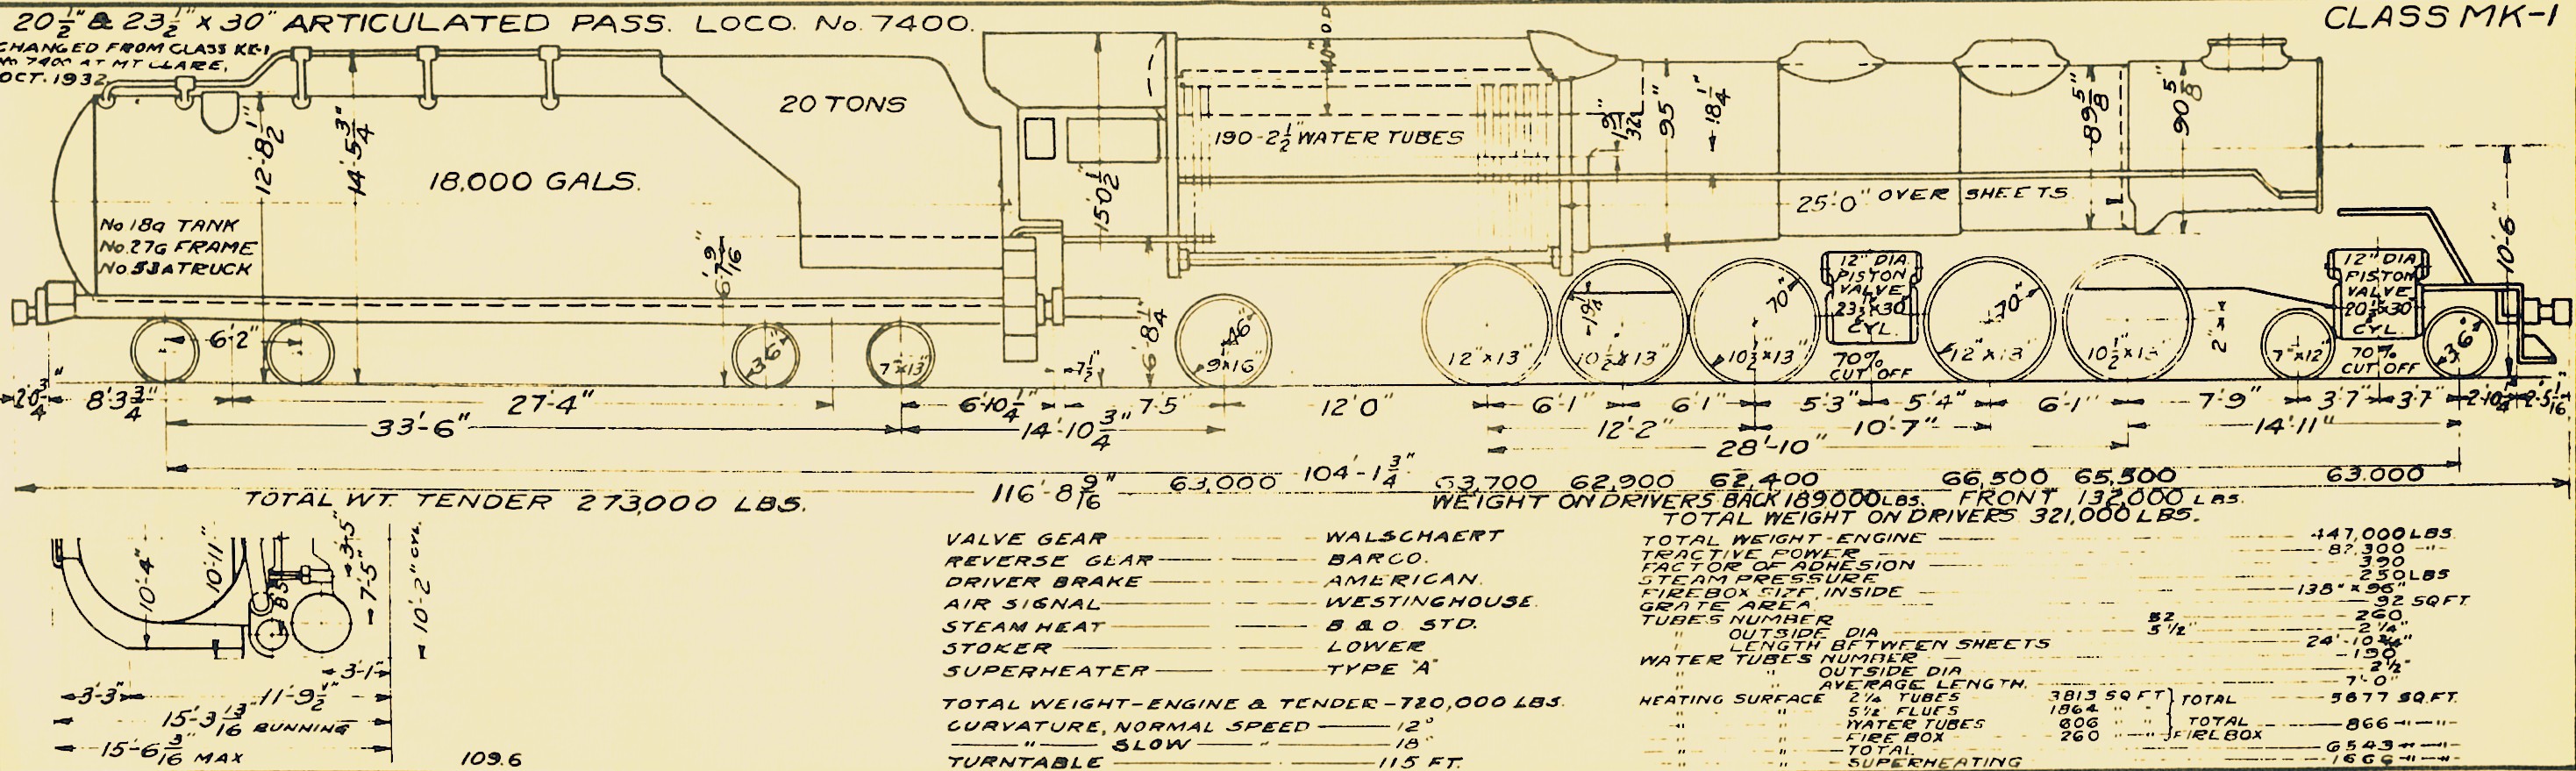 20½" & 23½" x 30" ARTICULATED PASS. LOCO. No. 7400.
CLASS MK-1
CHANGED FROM CLASS KK-1
No 7400 AT MT CLARE,
OCT. 1932
20 TONS
18,000 GALS.
No 18a TANK
No. 27G FRAME
No 53A TRUCK
12'-8½"
14'-5¾"
6'-7 9/16"
15'0½"
6'-8¼"
190-2½" WATER TUBES
1 9/32"
95"
18¼"
89⅝"
90⅝"
25'-0" OVER SHEETS
10'-6"
12" DIA.
PISTON
VALVE
23½x30"
CYL.
70%
CUT OFF
12" DIA
PISTON
VALVE
20½x30"
CYL.
70%
CUT OFF
6'-2"
36"
7"x13"
46"
9"x16"
12"x13"
10½"x13"
70"
10½"x13"
70"
12"x13"
10½"x13"
2"
7"x12"
36"
2'0¾" 8'3¾" 27'-4" 6'10¼" 7½" 7'-5" 12'0" 6'-1" 6'-1" 5'-3" 5'-4" 6'-1" 7'-9" 3'7" 3'7" 2'-5 1/16"
33'-6" 14'-10¾" 12'-2" 10'-7" 14'-11"
28'-10"
104'-1¾"
116'-8 9/16"
63,000 63,700 62,900 62,400 66,500 65,500 63.000
TOTAL WT. TENDER 273,000 LBS.
WEIGHT ON DRIVERS BACK 189000 LBS. FRONT 132,000 LBS.
TOTAL WEIGHT ON DRIVERS 321,000 LBS.
10'-4"
10'-11"
3'-5"
7'-5"
10'-2" CYL.
3'-1"
3'-3" 11'-9½"
15'-3 13/16 RUNNING
15'-6 3/16 MAX
109.6
VALVE GEAR WALSCHAERT
REVERSE GEAR BARCO.
DRIVER BRAKE AMERICAN.
AIR SIGNAL WESTINGHOUSE.
STEAM HEAT B & O. STD.
STOKER LOWER
SUPERHEATER TYPE "A"
TOTAL WEIGHT-ENGINE & TENDER-720,000 LBS.
CURVATURE, NORMAL SPEED 12°
" SLOW " 18°
TURNTABLE 115 FT.
TOTAL WEIGHT-ENGINE 447,000 LBS.
TRACTIVE POWER 82,300 "
FACTOR OF ADHESION 390
STEAM PRESSURE 250 LBS
FIREBOX SIZE, INSIDE 138" x 96"
GRATE AREA 92 SQ FT.
TUBES NUMBER 52 260
" OUTSIDE DIA 5½" 2¼"
" LENGTH BETWEEN SHEETS 24'-10¾"
WATER TUBES NUMBER 190
" " OUTSIDE DIA 2½"
" " AVERAGE LENGTH 7'-0"
HEATING SURFACE 2¼ TUBES 3813 SQ FT TOTAL 5677 SQ. FT.
" " 5½" FLUES 1864 " "
" " WATER TUBES 606 " " TOTAL 866 " "
" " FIRE BOX 260 " " FIREBOX
" " TOTAL 6543 " "
" " SUPERHEATING 1666 " "